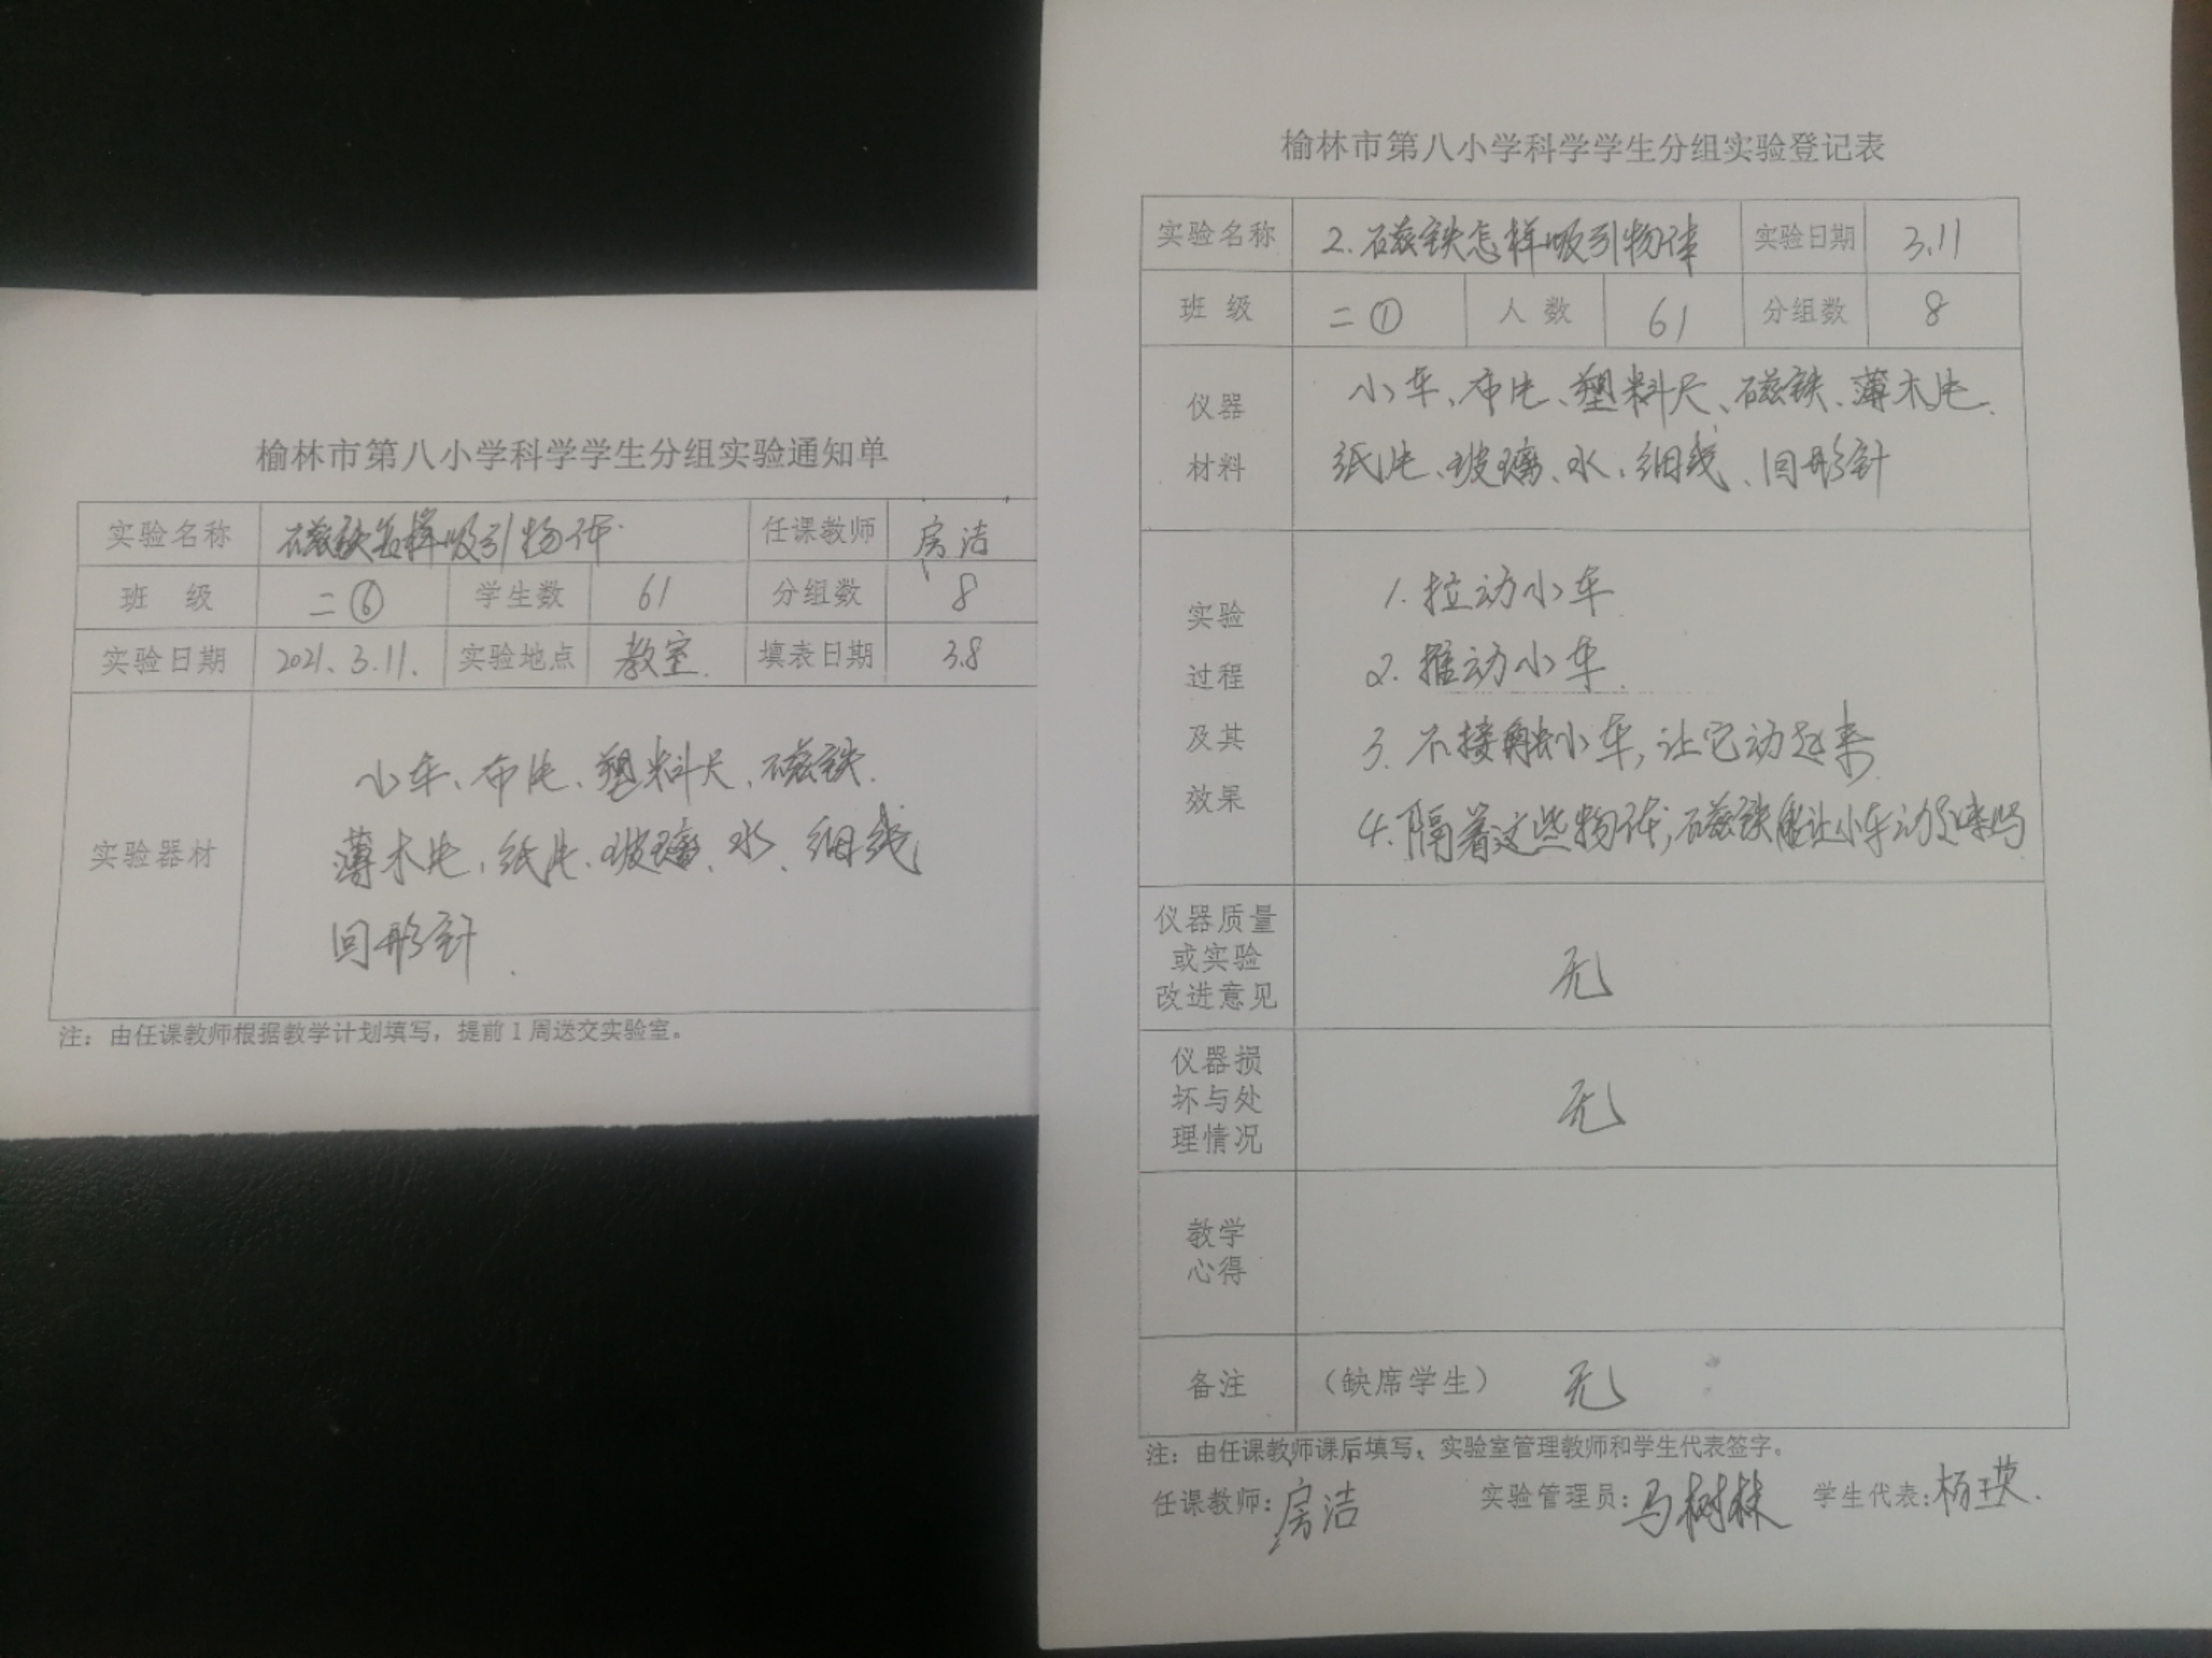 榆林市第八小学科学学生分组实验通知单
实验名称 磁铁怎样吸引物体 任课教师 房洁
班 级 二⑥ 学生数 61 分组数 8
实验日期 2021.3.11. 实验地点 教室. 填表日期 3.8
实验器材
小车、布片、塑料尺、磁铁.
薄木片、纸片、玻璃、水、细线
回形针.
注：由任课教师根据教学计划填写，提前1周送交实验室。
榆林市第八小学科学学生分组实验登记表
实验名称 2.磁铁怎样吸引物体 实验日期 3.11
班 级 二① 人 数 61 分组数 8
仪器
材料
小车、布片、塑料尺、磁铁、薄木片.
纸片、玻璃、水、细线、回形针
实验
过程
及其
效果
1.拉动小车
2.推动小车.
3.不接触小车,让它动起来
4.隔着这些物体,磁铁能让小车动起来吗
仪器质量
或实验
改进意见
无
仪器损
坏与处
理情况
无
教学
心得
备注 （缺席学生） 无
注：由任课教师课后填写、实验室管理教师和学生代表签字。
任课教师:房洁 实验管理员:马树林 学生代表:杨瑛.